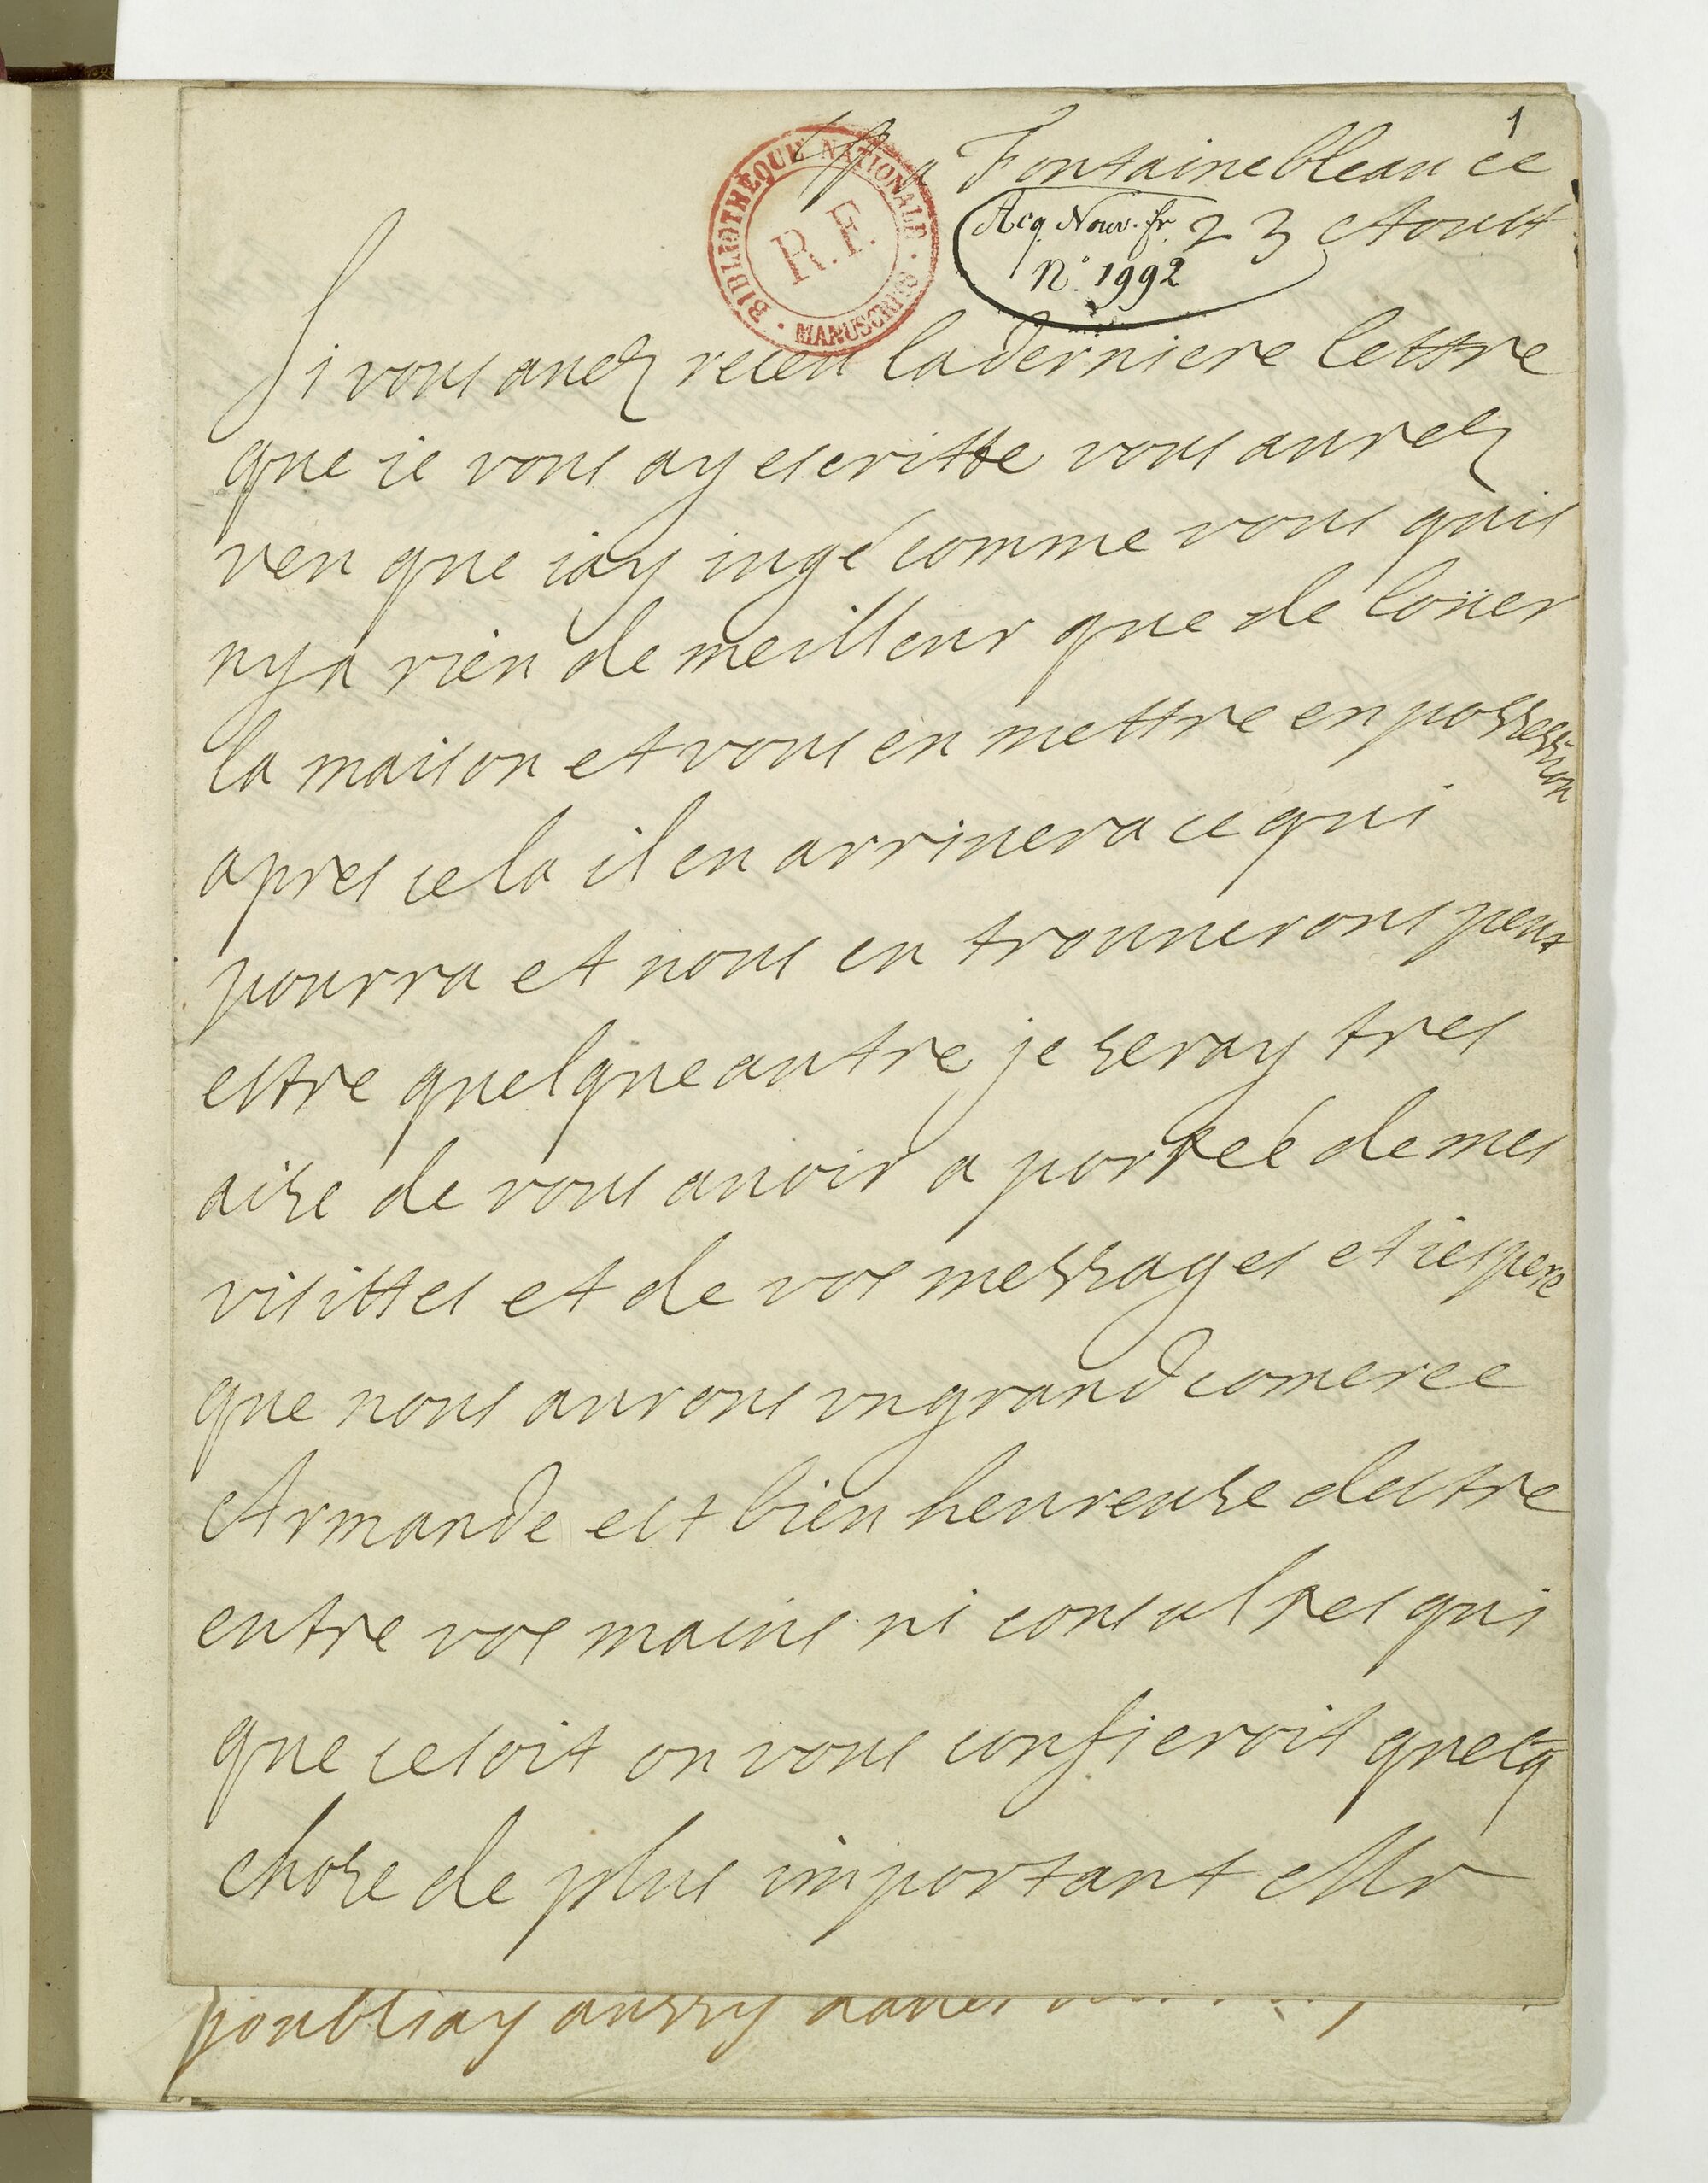 1
a Fontainebleau ce
23 Aoust
Acq. Nouv. fr.
N.° 1992
BIBLIOTHÈQUE NATIONALE
R.F.
MANUSCRITS
Si vous auez receu la derniere lettre
que ie vous ay escritte vous aurez
veu que iay iugé comme vous quil
ny a rien de meilleur que de loüer
la maison et vous en mettre en possession
apres cela il en arriuera ce qui
pourra et nous en trouuerons peut
estre quelque autre je seray tres
aise de vous auoir a porteé de mes
visittes et de vos messages et iespere
que nous aurons un grand comerce
Armande est bien heureuse destre
entre vos mains ni consultes qui
que ce soit on vous confieroit quelq
chose de plus important Mr
joubliay aussy